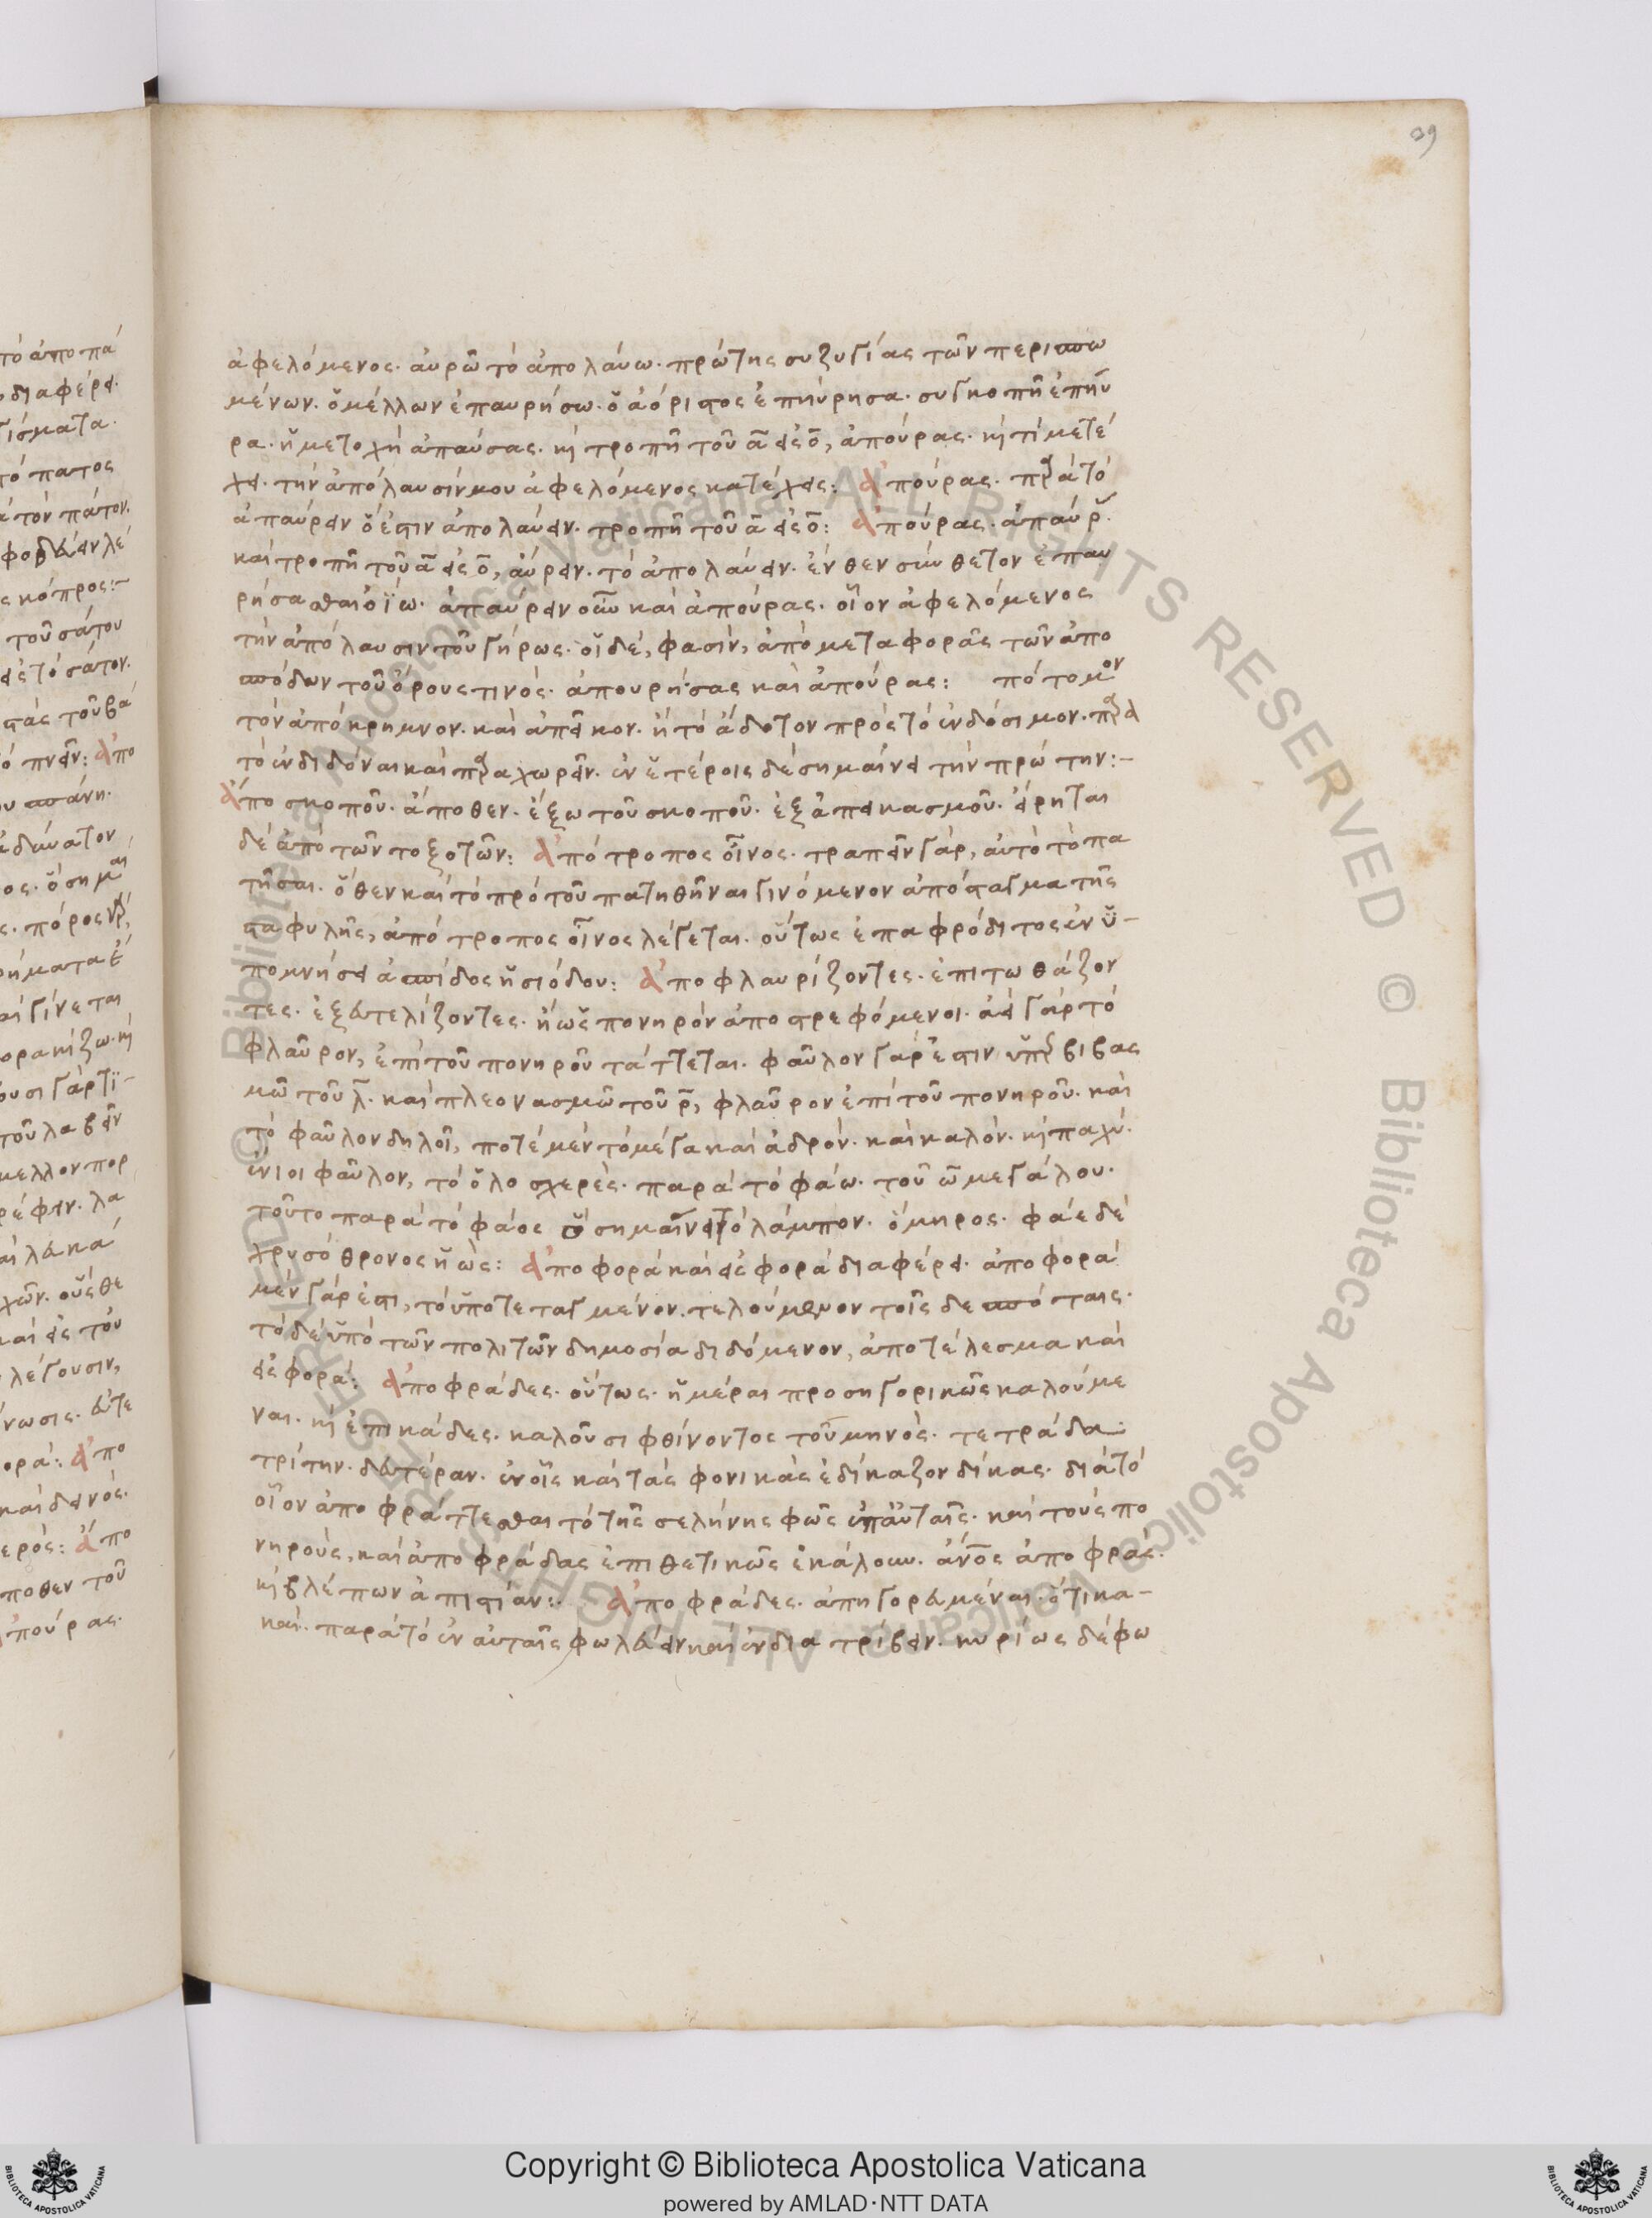 29
ἀφελόμενος. αὐρῶ τὸ ἀπολαύω. πρώτης συζυγίας τῶν περισπω
μένων. ὁ μέλλων ἐπαυρήσω. ὁ ἀόριστος ἐπηύρησα. συγκοπῆ ἐπηῦ
ρα. ἡ μετοχὴ ἀπαύσας. κ τροπῆ τοῦ α εἰς ο, ἀπούρας. κ τί μετέ
χει. τὴν ἀπόλαυσίν μου ἀφελόμενος κατέχεις: ἀπούρας. πρὰ τὸ
ἀπαύρειν ὅ ἐστιν ἀπολαύειν. τροπῆ τοῦ α εἰς ο: ἀπούρας. ἀπαύρ.
καὶ τροπῆ τοῦ α εἰς ο, αὔρειν. τὸ ἀπολαύειν. ἔνθεν σύνθετον ἐπαυ
ρήσασθαι ὀΐω. ἀπαύρειν οὖν καὶ ἀπούρας. οἷον ἀφελόμενος
τὴν ἀπόλαυσιν τοῦ γήρως. οἱ δέ, φασίν, ἀπὸ μεταφορᾶς τῶν ἀπο
σπόδων τοῦ ὄρους τινός. ἀπουρήσας καὶ ἀπούρας: πότομον
τὸν ἀπόκρημνον. καὶ ἀπεικον. ἢ τὸ ἄδοτον πρὸς τὸ ἐνδόσιμον. πρὰ
τὸ ἐνδιδόναι καὶ πραχωρεῖν. ἐν ἑτέροις δὲ σημαίνει τὴν πρώτην:-
ἀπὸ σκοποῦ. ἄποθεν. ἔξω τοῦ σκοποῦ. ἐξ ἀπεικασμοῦ. εἴρηται
δὲ ἀπὸ τῶν τοξοτῶν: ἀπότροπος οἶνος. τραπεῖν γὰρ, αὐτὸ τὸ πα
τῆσαι. ὅθεν καὶ τὸ πρὸ τοῦ πατηθῆναι γινόμενον ἀπόσταγμα τῆς
σταφυλῆς, ἀπότροπος οἶνος λέγεται. οὕτως ἐπαφρόδιτος ἐν ὑ-
πομνήσει ἀσπίδος ἡσιόδου: ἀποφλαυρίζοντες. ἐπιτωθάζον
τες. ἐξευτελίζοντες. ἢ ὡς πονηρὸν ἀποστρεφόμενοι. ἀεὶ γὰρ τὸ
φλαῦρον, ἐπὶ τοῦ πονηροῦ τάττεται. φαῦλον γάρ ἐστιν ὑπρβιβας
μῶ τοῦ λ. καὶ πλεονασμῶ τοῦ ρ, φλαῦρον ἐπὶ τοῦ πονηροῦ. καὶ
τὸ φαῦλον δηλοῖ, ποτὲ μὲν τὸ μέγα καὶ ἁδρόν. καὶ καλόν. κ παχύ.
ἔνιοι φαῦλον, τὸ ὁλοσχερὲς. παρὰ τὸ φάω. τοῦ ω μεγάλου.
τοῦτο παρὰ τὸ φάος ὃ σημαίνει τὸ λάμπον. ὅμηρος. φάε δὲ
χρυσόθρονος ἠὼς: ἀποφορὰ καὶ εἰσφορὰ διαφέρει. ἀποφορὰ
μὲν γάρ ἐστι, τὸ ὑποτεταγμένον. τελούμενον τοῖς δεσπόταις.
τὸ δὲ ὑπὸ τῶν πολιτῶν δημοσία διδόμενον, ἀποτέλεσμα καὶ
εἰσφορά: ἀποφράδες. οὕτως. ἡμέραι προσηγορικῶς καλούμε
ναι. κ ἐπικάδες. καλοῦσι φθίνοντος τοῦ μηνός. τετράδα.
τρίτην. δευτέραν. ἐν οἷς καὶ τὰς φονικὰς ἐδίκαζον δίκας. διὰ τὸ
οἷον ἀποφράττεσθαι τὸ τῆς σελήνης φῶς ἐπ' αὐταῖς. καὶ τοὺς πο
νηρούς, καὶ ἀποφράδας ἐπιθετικῶς ἐκάλουν. ἄνος ἀποφράς.
κ βλέπων ἀπιστίαν:. ἀποφράδες. ἀπηγορευμέναι. ὅτι κα-
καί. παρὰ τὸ ἐν αὐταῖς φωλεύειν καὶ ἐνδιατρίβειν. κυρίως δὲ φω
Copyright © Biblioteca Apostolica Vaticana
powered by AMLAD・NTT DATA